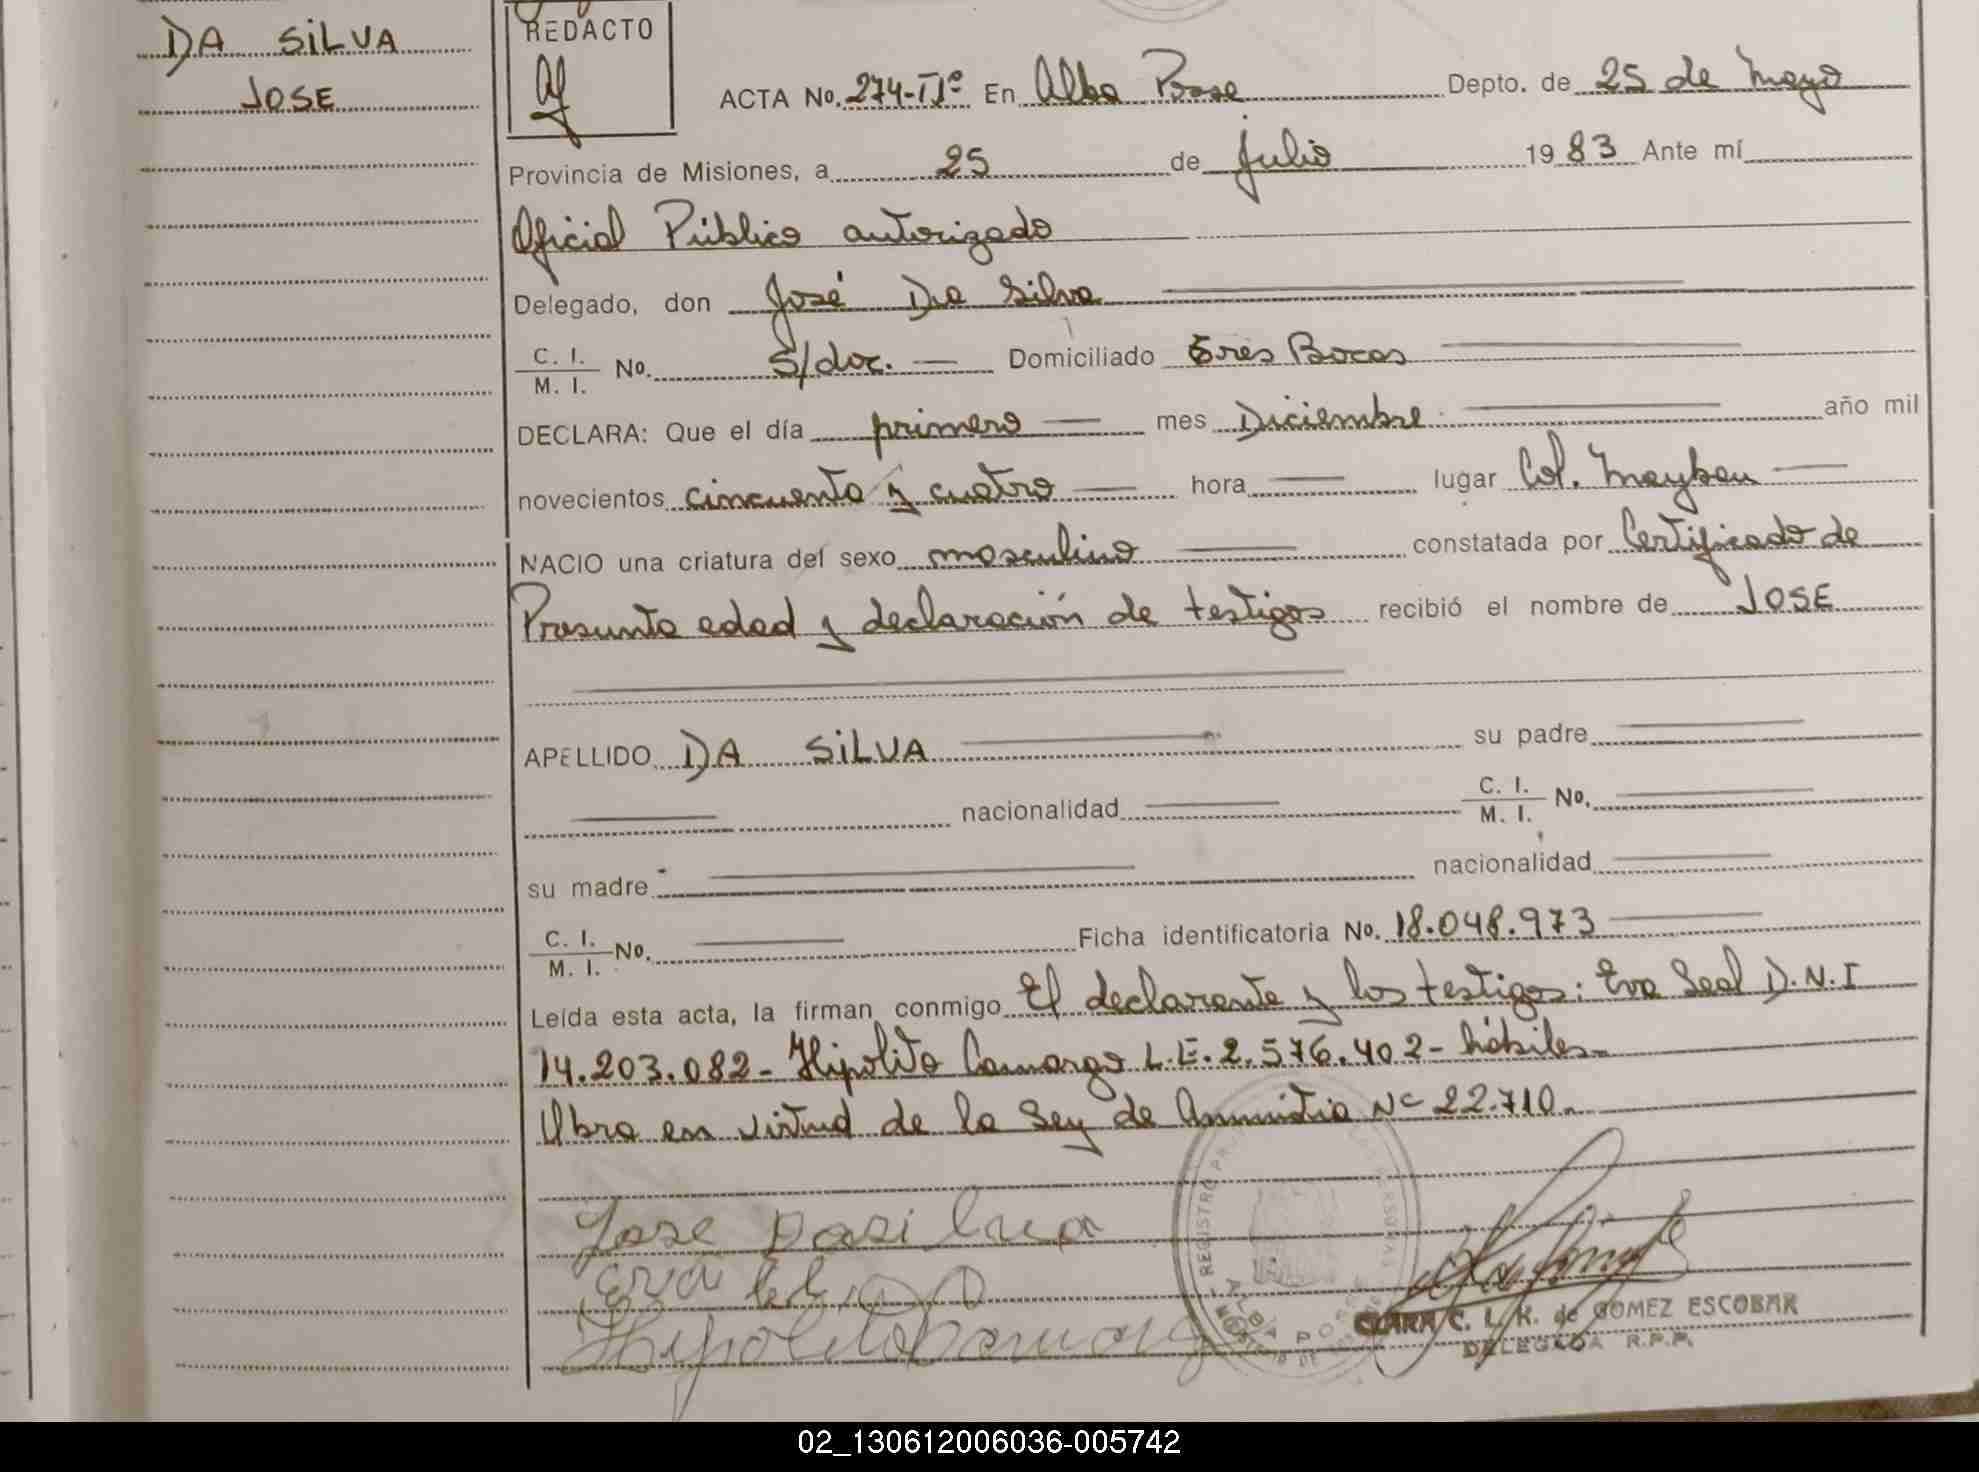 DA SiLVA
JOSE
REDACTO
ACTA No. 274-Tº IIº En Alba Pose Depto. de 25 de Mayo
Provincia de Misiones, a 25 de Julio 1983 Ante mí
Oficial Público autorizado
Delegado, don José Da Silva
C. I.
M. I. No. S/doc. Domiciliado Tres Bocas
DECLARA: Que el día primero mes Diciembre año mil
novecientos cincuenta y cuatro hora lugar Col.
NACIO una criatura del sexo masculino constatada por Certificado de
Presunta edad y declaración de testigos recibió el nombre de JOSE
APELLIDO DA SiLVA su padre
nacionalidad C. I.
M. I. No.
su madre nacionalidad
C. I.
M. I. No. Ficha identificatoria No. 18.048.973
Leída esta acta, la firman conmigo El declarante y los testigos: Eva Seal D.N.I
14.203.082- Hipolito Camargo L.E. 2.576.402- hábiles-
Obra en virtud de la Ley de Amnistia Nº 22.710.
Jose Dasilva
Eva
Hipolito Camargo
REGISTRO
ALBA POSE
CLARA C. L. K. de GOMEZ ESCOBAR
DELEGADA R.P.P.
02_130612006036-005742